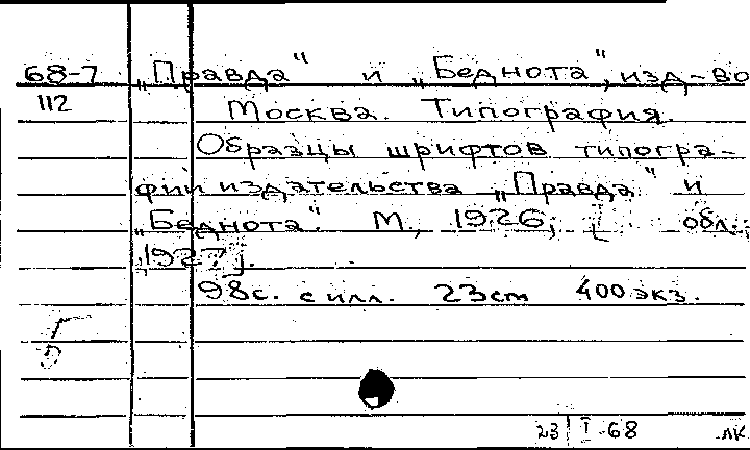 68-7 „Правда" и „Беднота", изд-во
112 Москва. Типография.
Образцы шрифтов типогра-
фии издательства „Правда" и
„Беднота". М., 1926; [обл.:
1927].
98с. с илл. 23см 400 экз.
23 I-68 ЛК.